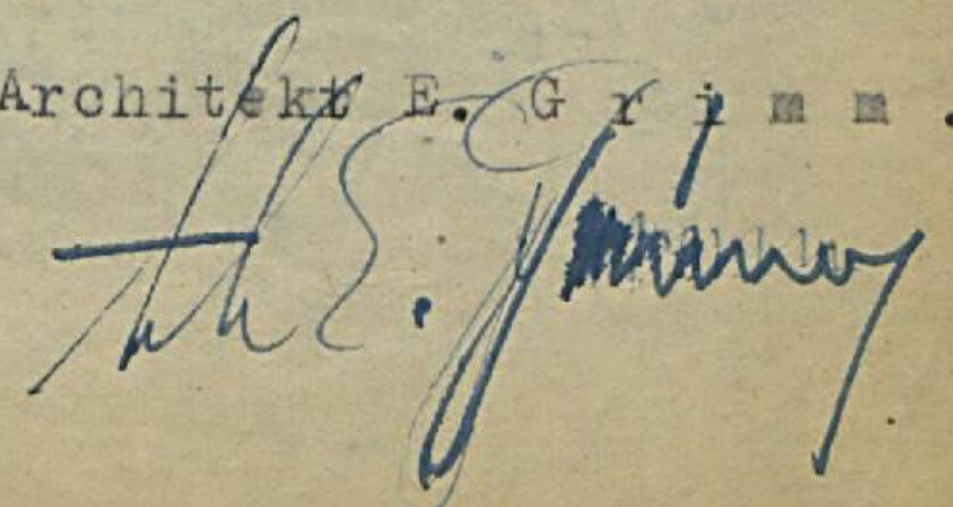 Architekt E. G r i m m .
E. Grimm